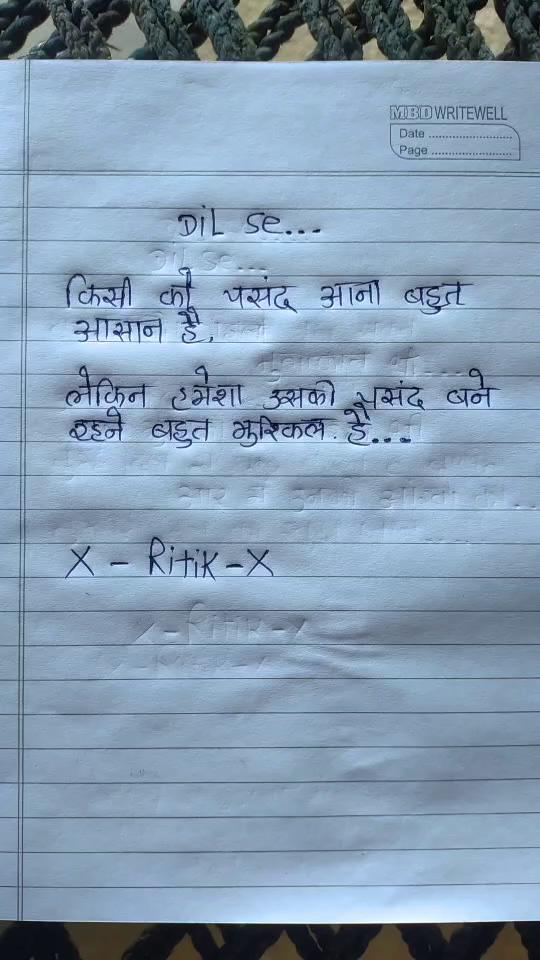 MBD WRITEWELL
Date ........................
Page ........................
DiL se...
किसी को पसंद आना बहुत
आसान है,
लेकिन हमेशा उसकी पसंद बने
रहने बहुत मुश्किल. है...
X - Ritik - X